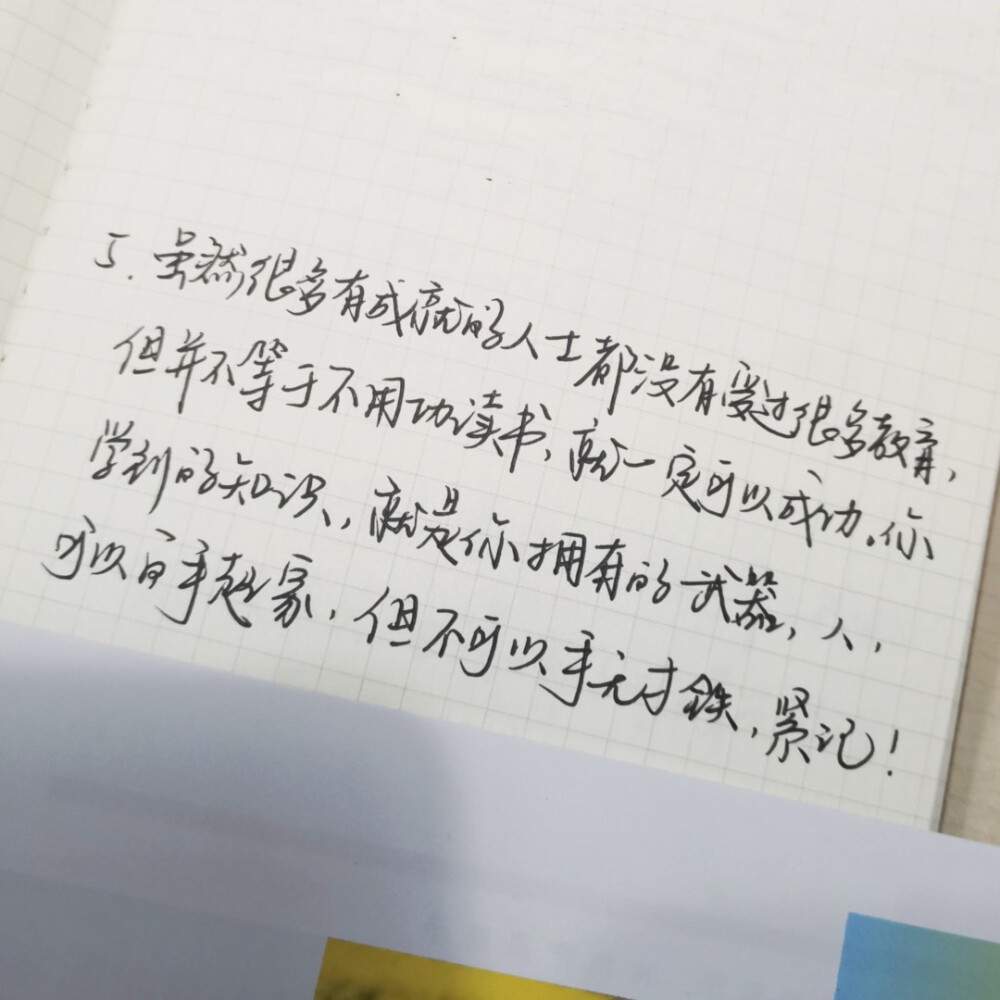 5. 虽然很多有成就的人士都没有受过很多教育,
但并不等于不用功读书,就一定可以成功。你
学到的知识,就是你拥有的武器,人,
可以白手起家,但不可以手无寸铁,紧记!